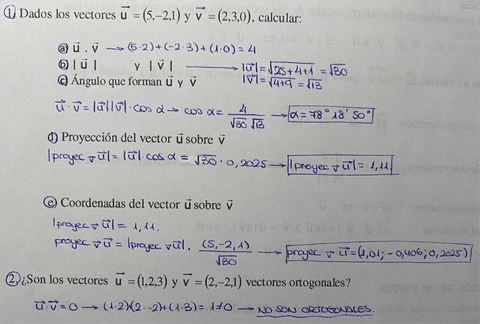 1 Dados los vectores u = (5,-2,1) y v = (2,3,0), calcular:
a) u . v → (5·2)+(-2·3)+(1·0)=4
b) |u| y |v| → |u|=√25+4+1 = √30
|v|=√4+9 = √13
c) Ángulo que forman u y v
u·v=|u||v|·cos α → cos α = 4/√30 √13 → α=78° 18' 50"
d) Proyección del vector u sobre v
|proyec v u|=|u|·cos α = √30 · 0,2025 → |proyec v u|= 1,11
e) Coordenadas del vector u sobre v
|proyec v u| = 1,11.
proyec v u = |proyec v u| · (5,-2,1)/√30 → proyec v u=(1,01; -0,406; 0,2025)
2 ¿Son los vectores u = (1,2,3) y v = (2,-2,1) vectores ortogonales?
u·v=0 → (1·2)+(2·-2)+(1·3)= 1≠0 → NO SON ORTOGONALES.